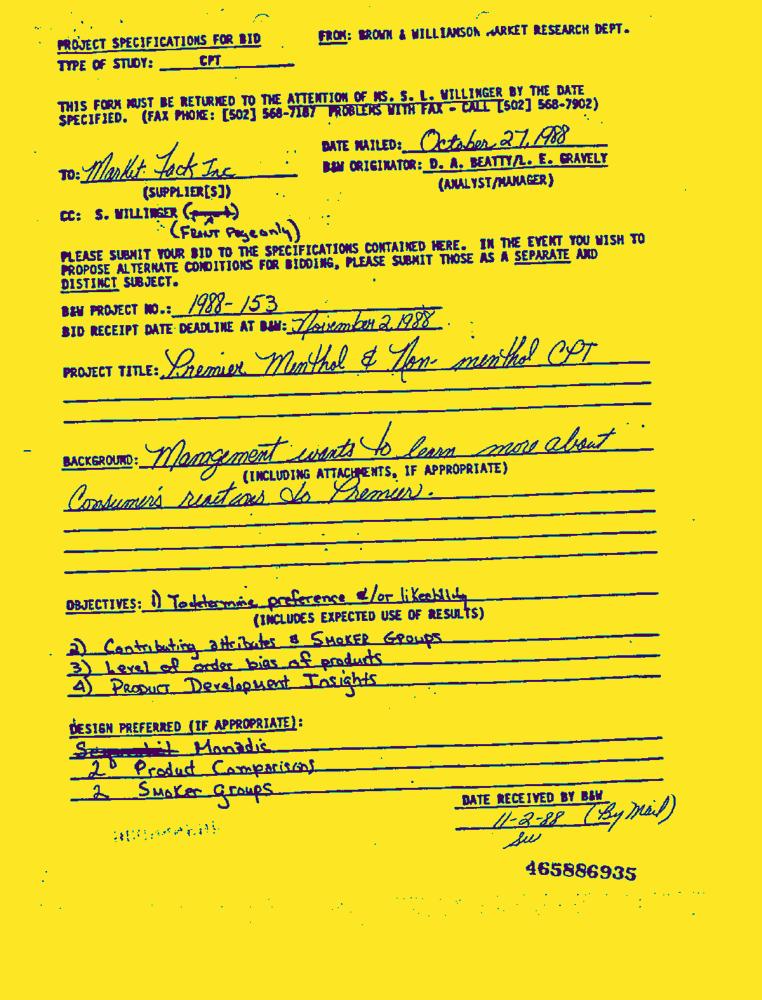 PROJECT SPECIFICATIONS FOR BID
FROM: BROWN & WILLIAMSON MARKET RESEARCH DEPT.
TYPE OF STUDY: CPT
THIS FORM MUST BE RETURNED TO THE ATTENTION OF MS. S. L. WILLINGER BY THE DATE
SPECIFIED. (FAX PHONE: [502] 568-7187 PROBLEMS WITH FAX - CALL [502] 568-7902)
DATE MAILED: October 27, 1988
TO: Market Inc
B&W ORIGINATOR: D. A. BEATTY/L. E. GRAVELY
(SUPPLIER[S])
(ANALYST/MANAGER)
CC: S. WILLINGER
(FRONT Page only)
PLEASE SUBMIT YOUR BID TO THE SPECIFICATIONS CONTAINED HERE. IN THE EVENT YOU WISH TO
PROPOSE ALTERNATE CONDITIONS FOR BIDDING, PLEASE SUBMIT THOSE AS A SEPARATE AND
DISTINCT SUBJECT.
B&W PROJECT NO.: 1988-153
BID RECEIPT DATE DEADLINE AT B&W: November 2, 1988
PROJECT TITLE: Premier Menthol & Non-menthol CPT
BACKGROUND: Management wants to learn more about
(INCLUDING ATTACHMENTS, IF APPROPRIATE)
Consumer's reactions to Premier.
OBJECTIVES: 1) To determine preference &/or likeability
(INCLUDES EXPECTED USE OF RESULTS)
2) Contributing attributes & SMOKER GROUPS
3) Level of order bias of products
4) PRODUCT Development Insights
DESIGN PREFERRED (IF APPROPRIATE):
Monadic
2 Product Comparisons
2 SMOKER Groups
DATE RECEIVED BY B&W
11-2-88 (By Mail)
465886935